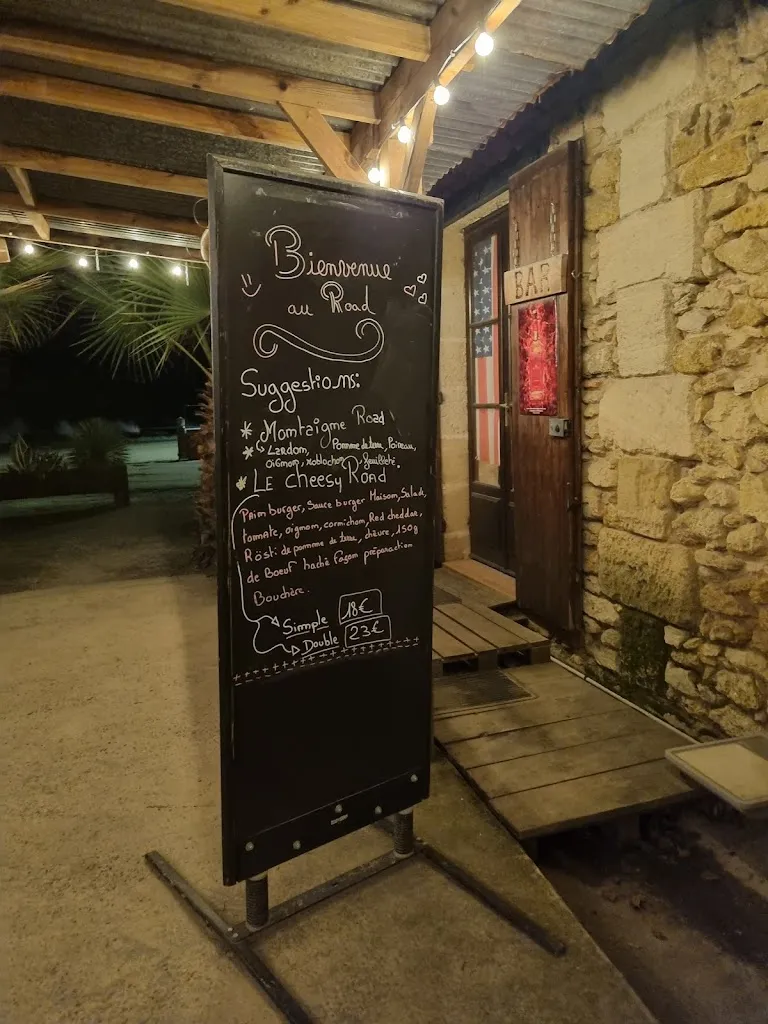 Bienvenue
au Road
Suggestions:
* Montaigne Road
* Lardon, Pomme de terre, Poireau,
oignon, roblochon, feuilleté.
* LE Cheesy Road
Pain burger, Sauce burger Maison, Salade,
tomate, oignon, cornichon, Red cheddar,
Rösti de pomme de terre, chèvre, 150g
de Boeuf haché façon préparation
Bouchère.
Simple 18€
Double 23€
BAR